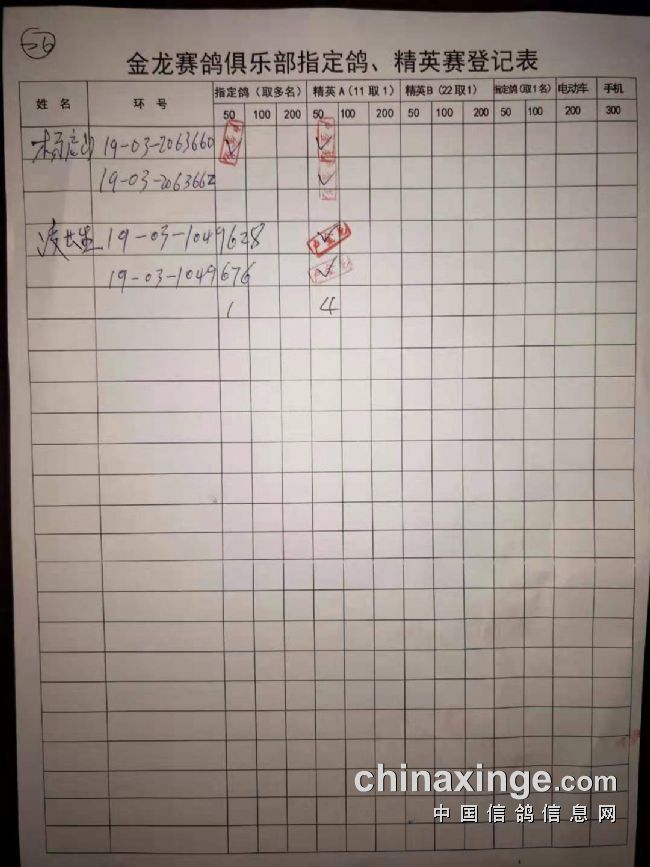 26
金龙赛鸽俱乐部指定鸽、精英赛登记表
姓 名 环 号 指定鸽（取多名） 精英A（11取1） 精英B（22取1） 指定鸽（取1名） 电动车 手机
50 100 200 50 100 200 50 100 200 50 100 200 300
19-03-2063660 ✓ ✓
19-03-2063662 ✓
19-03-1049628 ✓
19-03-1049676 ✓
1 4
chinaxinge.com
中国信鸽信息网